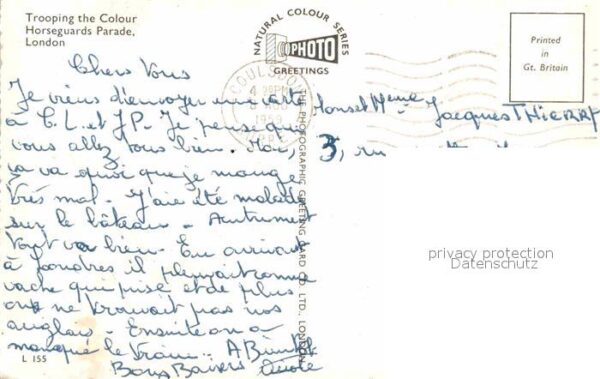 Trooping the Colour
Horseguards Parade,
London
NATURAL COLOUR SERIES
PHOTO
GREETINGS
Printed
in
Gt. Britain
COULSDON
1959
THE PHOTOGRAPHIC GREETING CARD CO. LTD., LONDON
Chers Vous
Je viens d'envoyer une carte
à C. L. et J P. Je pense que
vous allez tous bien. Moi,
ça va quoi que je mange
très mal. J'aie été malade
sur le bâteau. Autrement
tout va bien. En arrivant
à Londres il pleuvait comme
vache qui pisse et de plus
on ne trouvait pas nos
anglais. Ensuite on a
manqué le train. A Bientôt
Bons Baisers
Monsr et Mme Jacques THIERRY
3, rue
L 155
privacy protection
Datenschutz